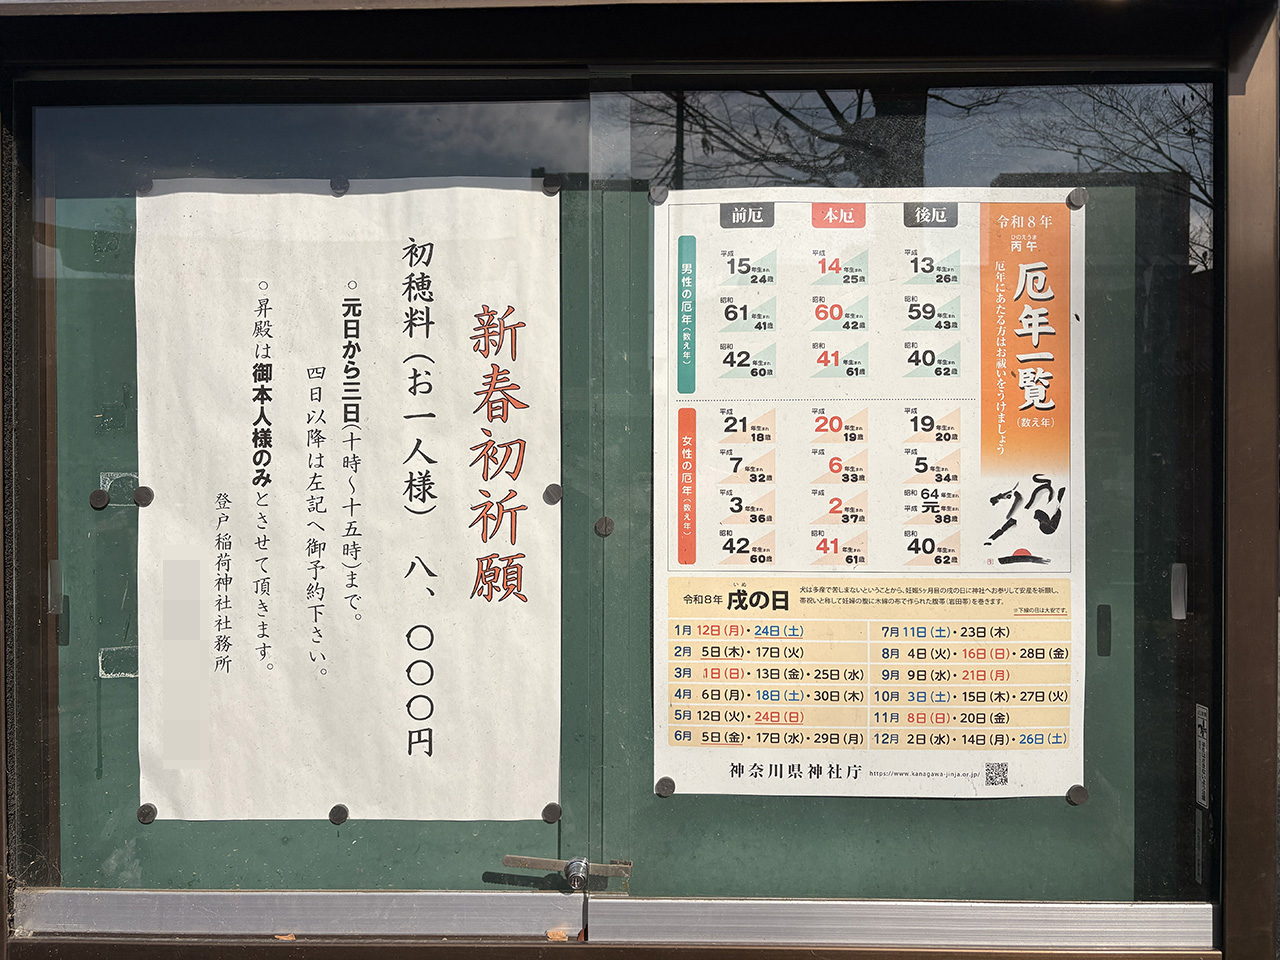 新春初祈願
初穂料（お一人様）　八、〇〇〇円
○元日から三日（十時～十五時）まで。
四日以降は左記へ御予約下さい。
○昇殿は御本人様のみとさせて頂きます。
登戸稲荷神社社務所
令和8年
ひのえうま
丙午
厄年一覧
（数え年）
厄年にあたる方はお祓いをうけましょう
前厄 本厄 後厄
男性の厄年（数え年）
平成15年生まれ24歳 平成14年生まれ25歳 平成13年生まれ26歳
昭和61年生まれ41歳 昭和60年生まれ42歳 昭和59年生まれ43歳
昭和42年生まれ60歳 昭和41年生まれ61歳 昭和40年生まれ62歳
女性の厄年（数え年）
平成21年生まれ18歳 平成20年生まれ19歳 平成19年生まれ20歳
平成7年生まれ32歳 平成6年生まれ33歳 平成5年生まれ34歳
平成3年生まれ36歳 平成2年生まれ37歳 昭和64平成元年生まれ38歳
昭和42年生まれ60歳 昭和41年生まれ61歳 昭和40年生まれ62歳
いぬ
令和8年 戌の日
犬は多産で苦しまないということから、妊娠5ヶ月目の戌の日に神社へお参りして安産を祈願し、
帯祝いと称して妊婦の腹に木綿の布で作られた腹帯（岩田帯）を巻きます。
※下線の日は大安です。
1月 12日（月）・24日（土）
2月 5日（木）・17日（火）
3月 1日（日）・13日（金）・25日（水）
4月 6日（月）・18日（土）・30日（木）
5月 12日（火）・24日（日）
6月 5日（金）・17日（水）・29日（月）
7月 11日（土）・23日（木）
8月 4日（火）・16日（日）・28日（金）
9月 9日（水）・21日（月）
10月 3日（土）・15日（木）・27日（火）
11月 8日（日）・20日（金）
12月 2日（水）・14日（月）・26日（土）
神奈川県神社庁 https://www.kanagawa-jinja.or.jp/